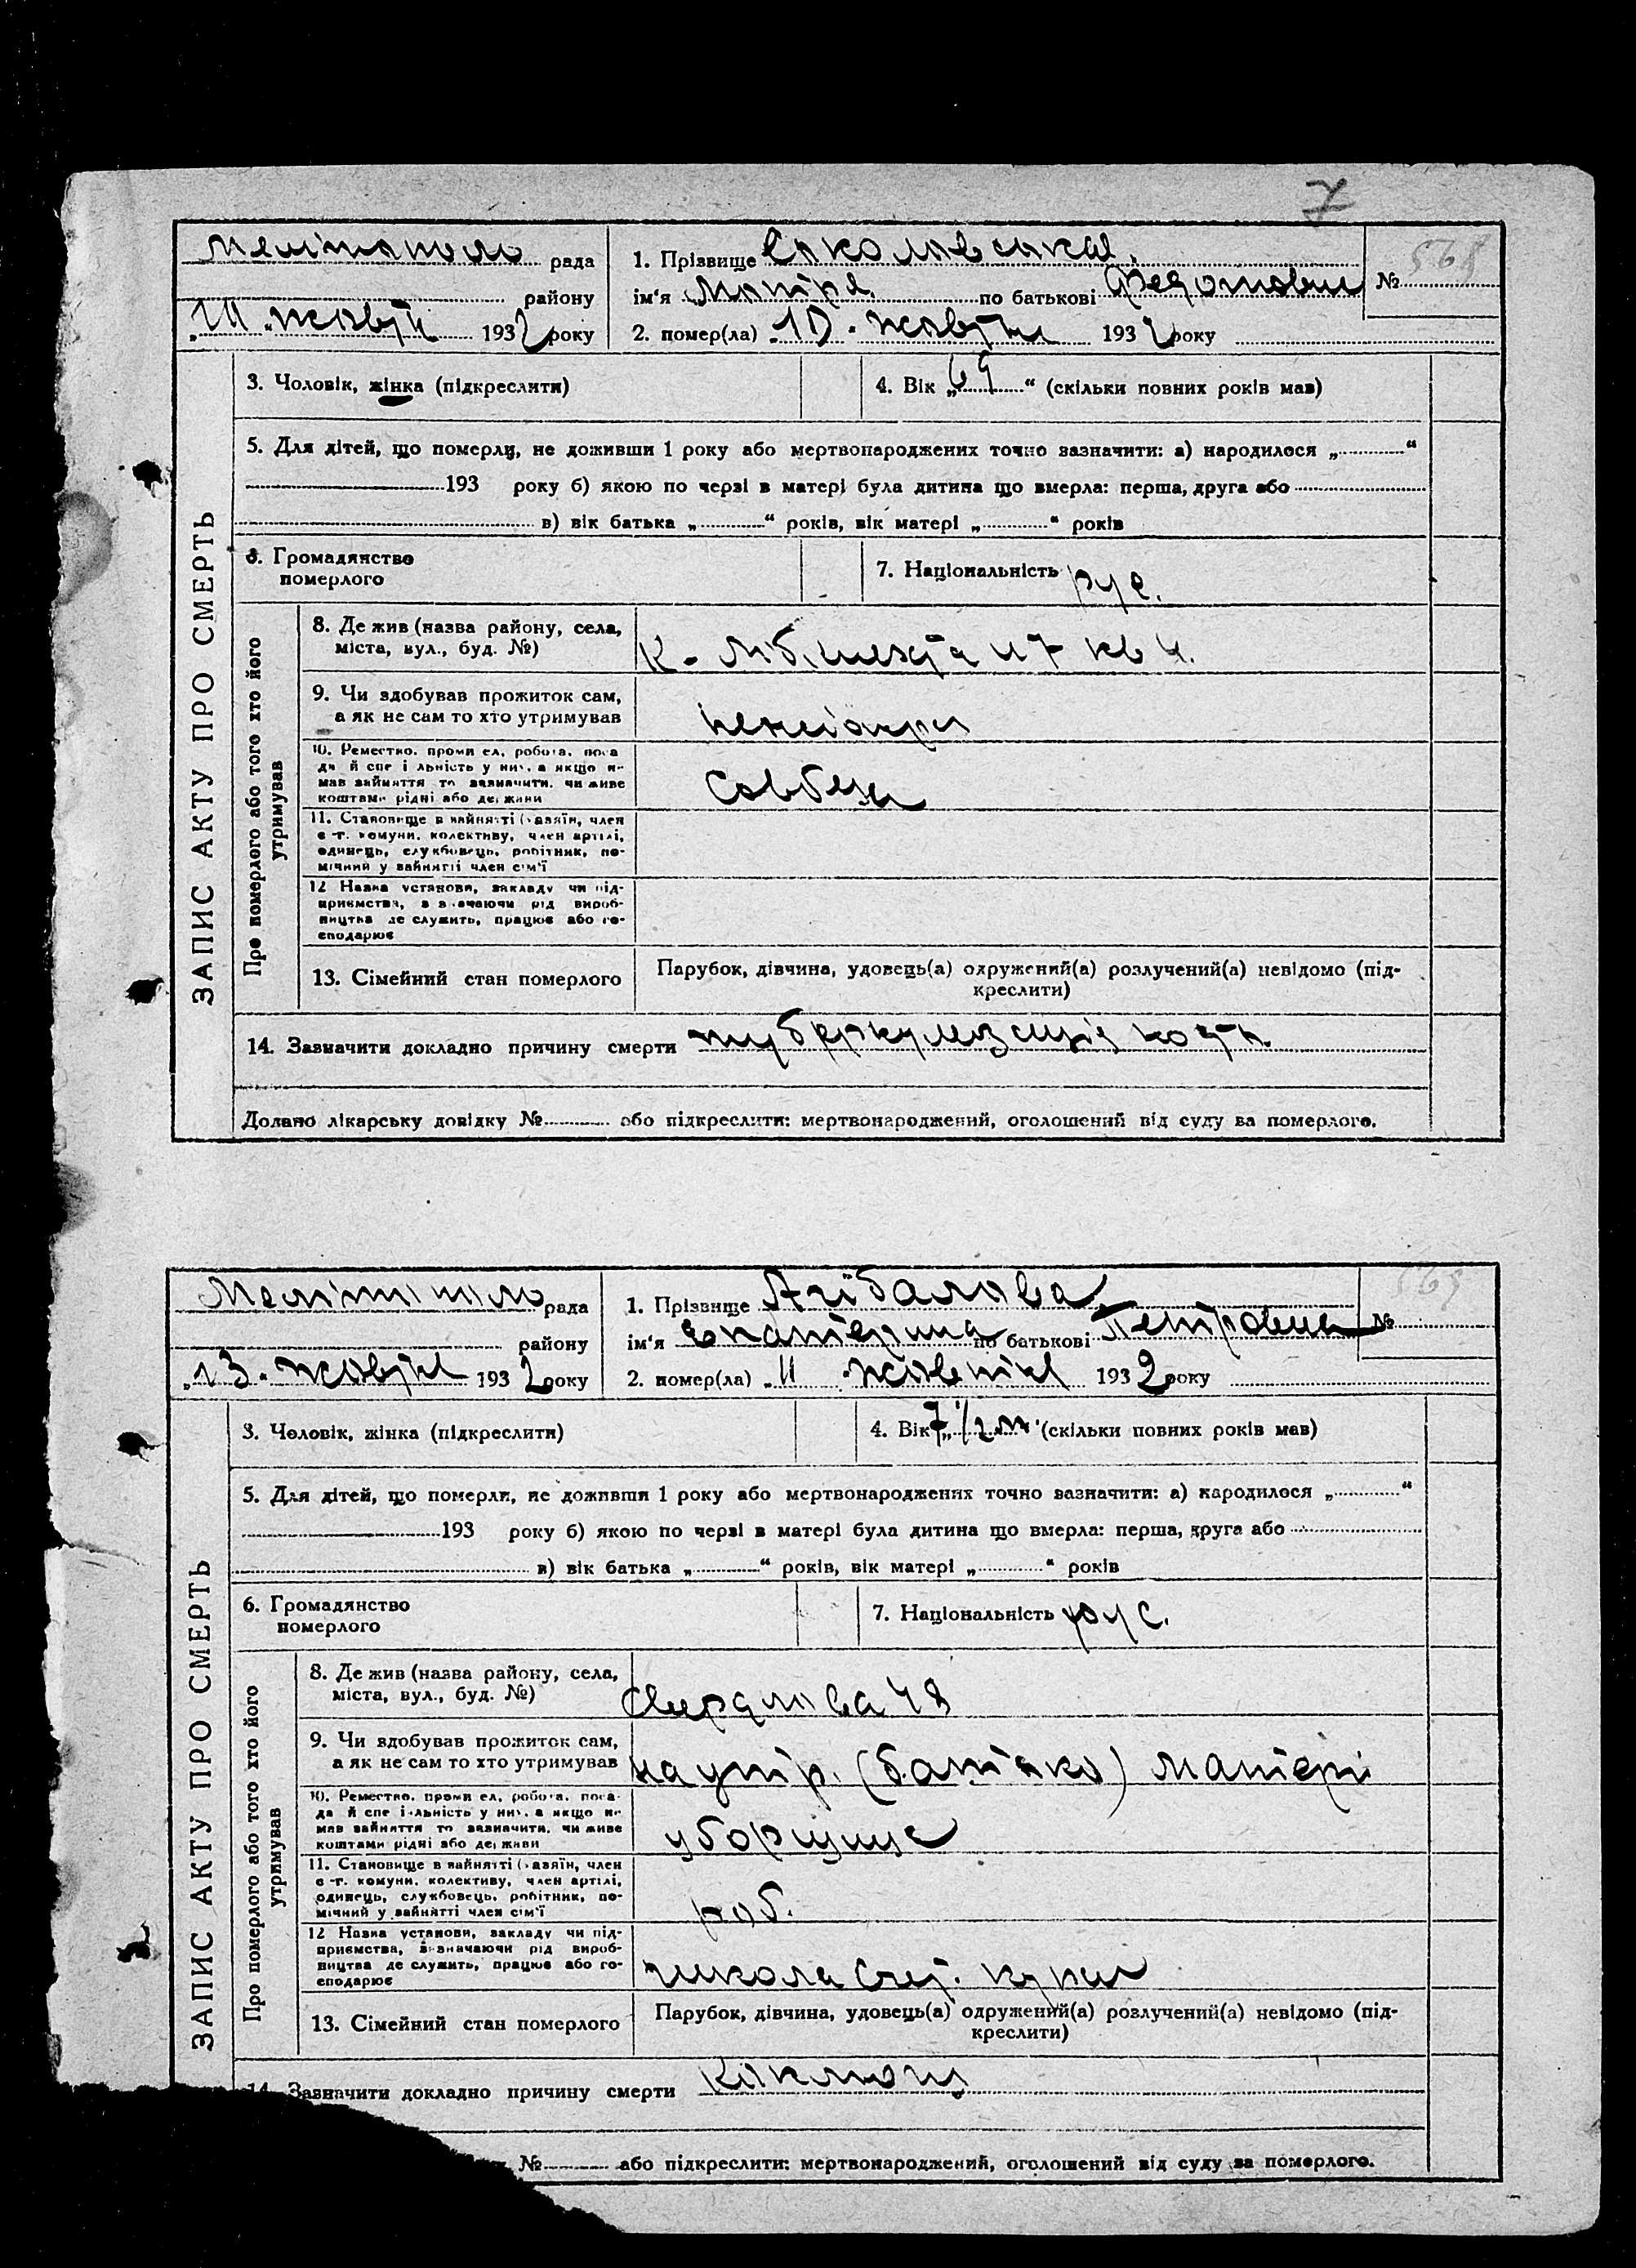 7
Мелітополь рада
району
1932 року
1. Прізвище Соколовська
ім'я по батькові Федотовна
№ 568
2. помер(ла) „10" жовтня 1932 року
ЗАПИС АКТУ ПРО СМЕРТЬ
3. Чоловік, жінка (підкреслити)
4. Вік „69" (скільки повних років мав)
5. Для дітей, що померли, не доживши 1 року або мертвонароджених точно зазначити: а) народилося „ "
193 року б) якою по черзі в матері була дитина що вмерла: перша, друга або
в) вік батька „ " років, вік матері „ " років
6. Громадянство
померлого
7. Національність рус.
Про померлого або того хто його
утримував
8. Де жив (назва району, села,
міста, вул., буд. №)
9. Чи здобував прожиток сам,
а як не сам то хто утримував
10. Ремество, промисел, робота, поса-
да й спеціяльність у них, а якщо не
мав зайняття то зазначити, чи живе
коштами рідні або держави
11. Становище в зайнятті (хазяїн, член
с.-г. комуни, колективу, член артілі,
одинець, службовець, робітник, по-
мічний у зайнятті член сім'ї
12 Назва установи, закладу чи під-
приємства, зазначаючи рід вироб-
ництва де служить, працює або го-
сподарює
13. Сімейний стан померлого
Парубок, дівчина, удовець(а) одружений(а) розлучений(а) невідомо (під-
креслити)
14. Зазначити докладно причину смерти
Додано лікарську довідку № або підкреслити: мертвонароджений, оголошений від суду за померлого.
Мелітополь рада
району
„13" жовтня 1932 року
1. Прізвище Агібалова
ім'я Екатерина по батькові Петровна
№ 569
2. помер(ла) „11 жовтня 1932 року
ЗАПИС АКТУ ПРО СМЕРТЬ
3. Чоловік, жінка (підкреслити)
4. Вік „7 1/2 м" (скільки повних років мав)
5. Для дітей, що померли, не доживши 1 року або мертвонароджених точно зазначити: а) народилося „ "
193 року б) якою по черзі в матері була дитина що вмерла: перша, друга або
в) вік батька „ " років, вік матері „ " років
6. Громадянство
померлого
7. Національність рус.
Про померлого або того хто його
утримував
8. Де жив (назва району, села,
міста, вул., буд. №)
Свердлова 48
9. Чи здобував прожиток сам,
а як не сам то хто утримував
на утр. (батько) матері
10. Ремество, промисел, робота, поса-
да й спеціяльність у них, а якщо не
мав зайняття то зазначити, чи живе
коштами рідні або держави
уборщица
11. Становище в зайнятті (хазяїн, член
с.-г. комуни, колективу, член артілі,
одинець, службовець, робітник, по-
мічний у зайнятті член сім'ї
роб.
12 Назва установи, закладу чи під-
приємства, зазначаючи рід вироб-
ництва де служить, працює або го-
сподарює
школа
13. Сімейний стан померлого
Парубок, дівчина, удовець(а) одружений(а) розлучений(а) невідомо (під-
креслити)
14. Зазначити докладно причину смерти Коклюш
№ або підкреслити: мертвонароджений, оголошений від суду за померлого.